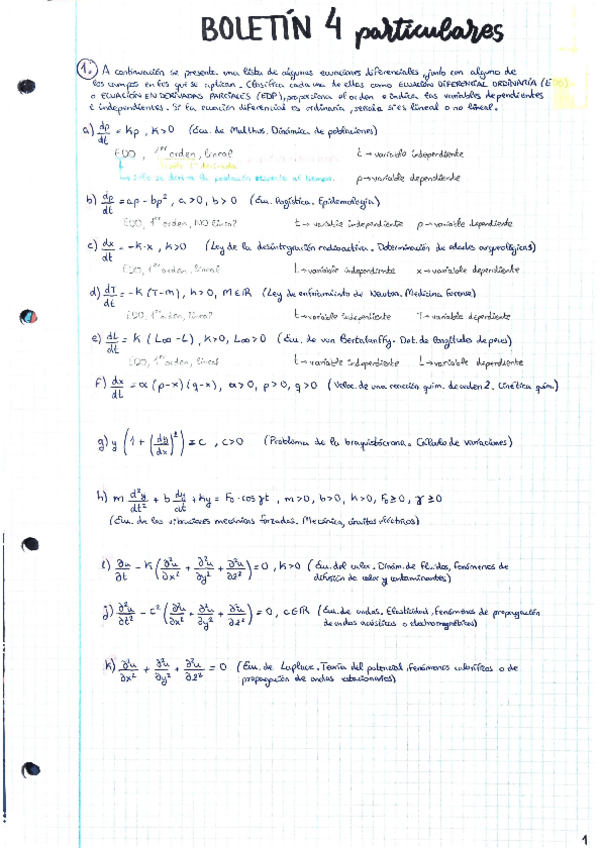 BOLETÍN 4 particulares
1. A continuación se presenta una lista de algunas ecuaciones diferenciales, junto con alguno de
los campos en los que se aplican. Clasifica cada una de ellas como ECUACIÓN DIFERENCIAL ORDINARIA (EDO)
o ECUACIÓN EN DERIVADAS PARCIALES (EDP), proporciona el orden e indica las variables dependientes
e independientes. Si la ecuación diferencial es ordinaria, señala si es lineal o no lineal.
a) dp/dt = Kp, K>0 (Ecu. de Malthus. Dinámica de poblaciones)
EDO, 1er orden, lineal t → variable independiente
p → variable dependiente
b) dp/dt = ap - bp², a>0, b>0 (Ecu. Logística. Epidemiología)
EDO, 1er orden, NO lineal t → variable independiente p → variable dependiente
c) dx/dt = -K·x, K>0 (Ley de la desintegración radioactiva. Determinación de edades arqueológicas)
EDO, 1er orden, lineal t → variable independiente x → variable dependiente
d) dT/dt = -K (T-m), K>0, m∈ℝ (Ley de enfriamiento de Newton. Medicina Forense)
EDO, 1er orden, lineal t → variable independiente T → variable dependiente
e) dL/dt = K (L∞ - L), K>0, L∞>0 (Ecu. de von Bertalanffy. Det. de longitudes de peces)
EDO, 1er orden, lineal t → variable independiente L → variable dependiente
f) dx/dt = α (p-x)(q-x), α>0, p>0, q>0 (Veloc. de una reacción quím. de orden 2. Cinética quím)
g) y (1 + (dy/dx)²) = c, c>0 (Problema de la braquistócrona. Cálculo de variaciones)
h) m d²y/dt² + b dy/dt + ky = F₀·cos γt, m>0, b>0, k>0, F₀≥0, γ≥0
(Ecu. de las vibraciones mecánicas forzadas. Mecánica, circuitos eléctricos)
i) ∂u/∂t - K (∂²u/∂x² + ∂²u/∂y² + ∂²u/∂z²) = 0, K>0 (Ecu. del calor. Dinám. de fluidos, fenómenos de
difusión de calor y contaminantes)
j) ∂²u/∂t² - c² (∂²u/∂x² + ∂²u/∂y² + ∂²u/∂z²) = 0, c∈ℝ (Ecu. de ondas. Elasticidad, fenómenos de propagación
de ondas acústicas o electromagnéticas)
k) ∂²u/∂x² + ∂²u/∂y² + ∂²u/∂z² = 0 (Ecu. de Laplace. Teoría del potencial, fenómenos caloríficos o de
propagación de ondas estacionarias)
1